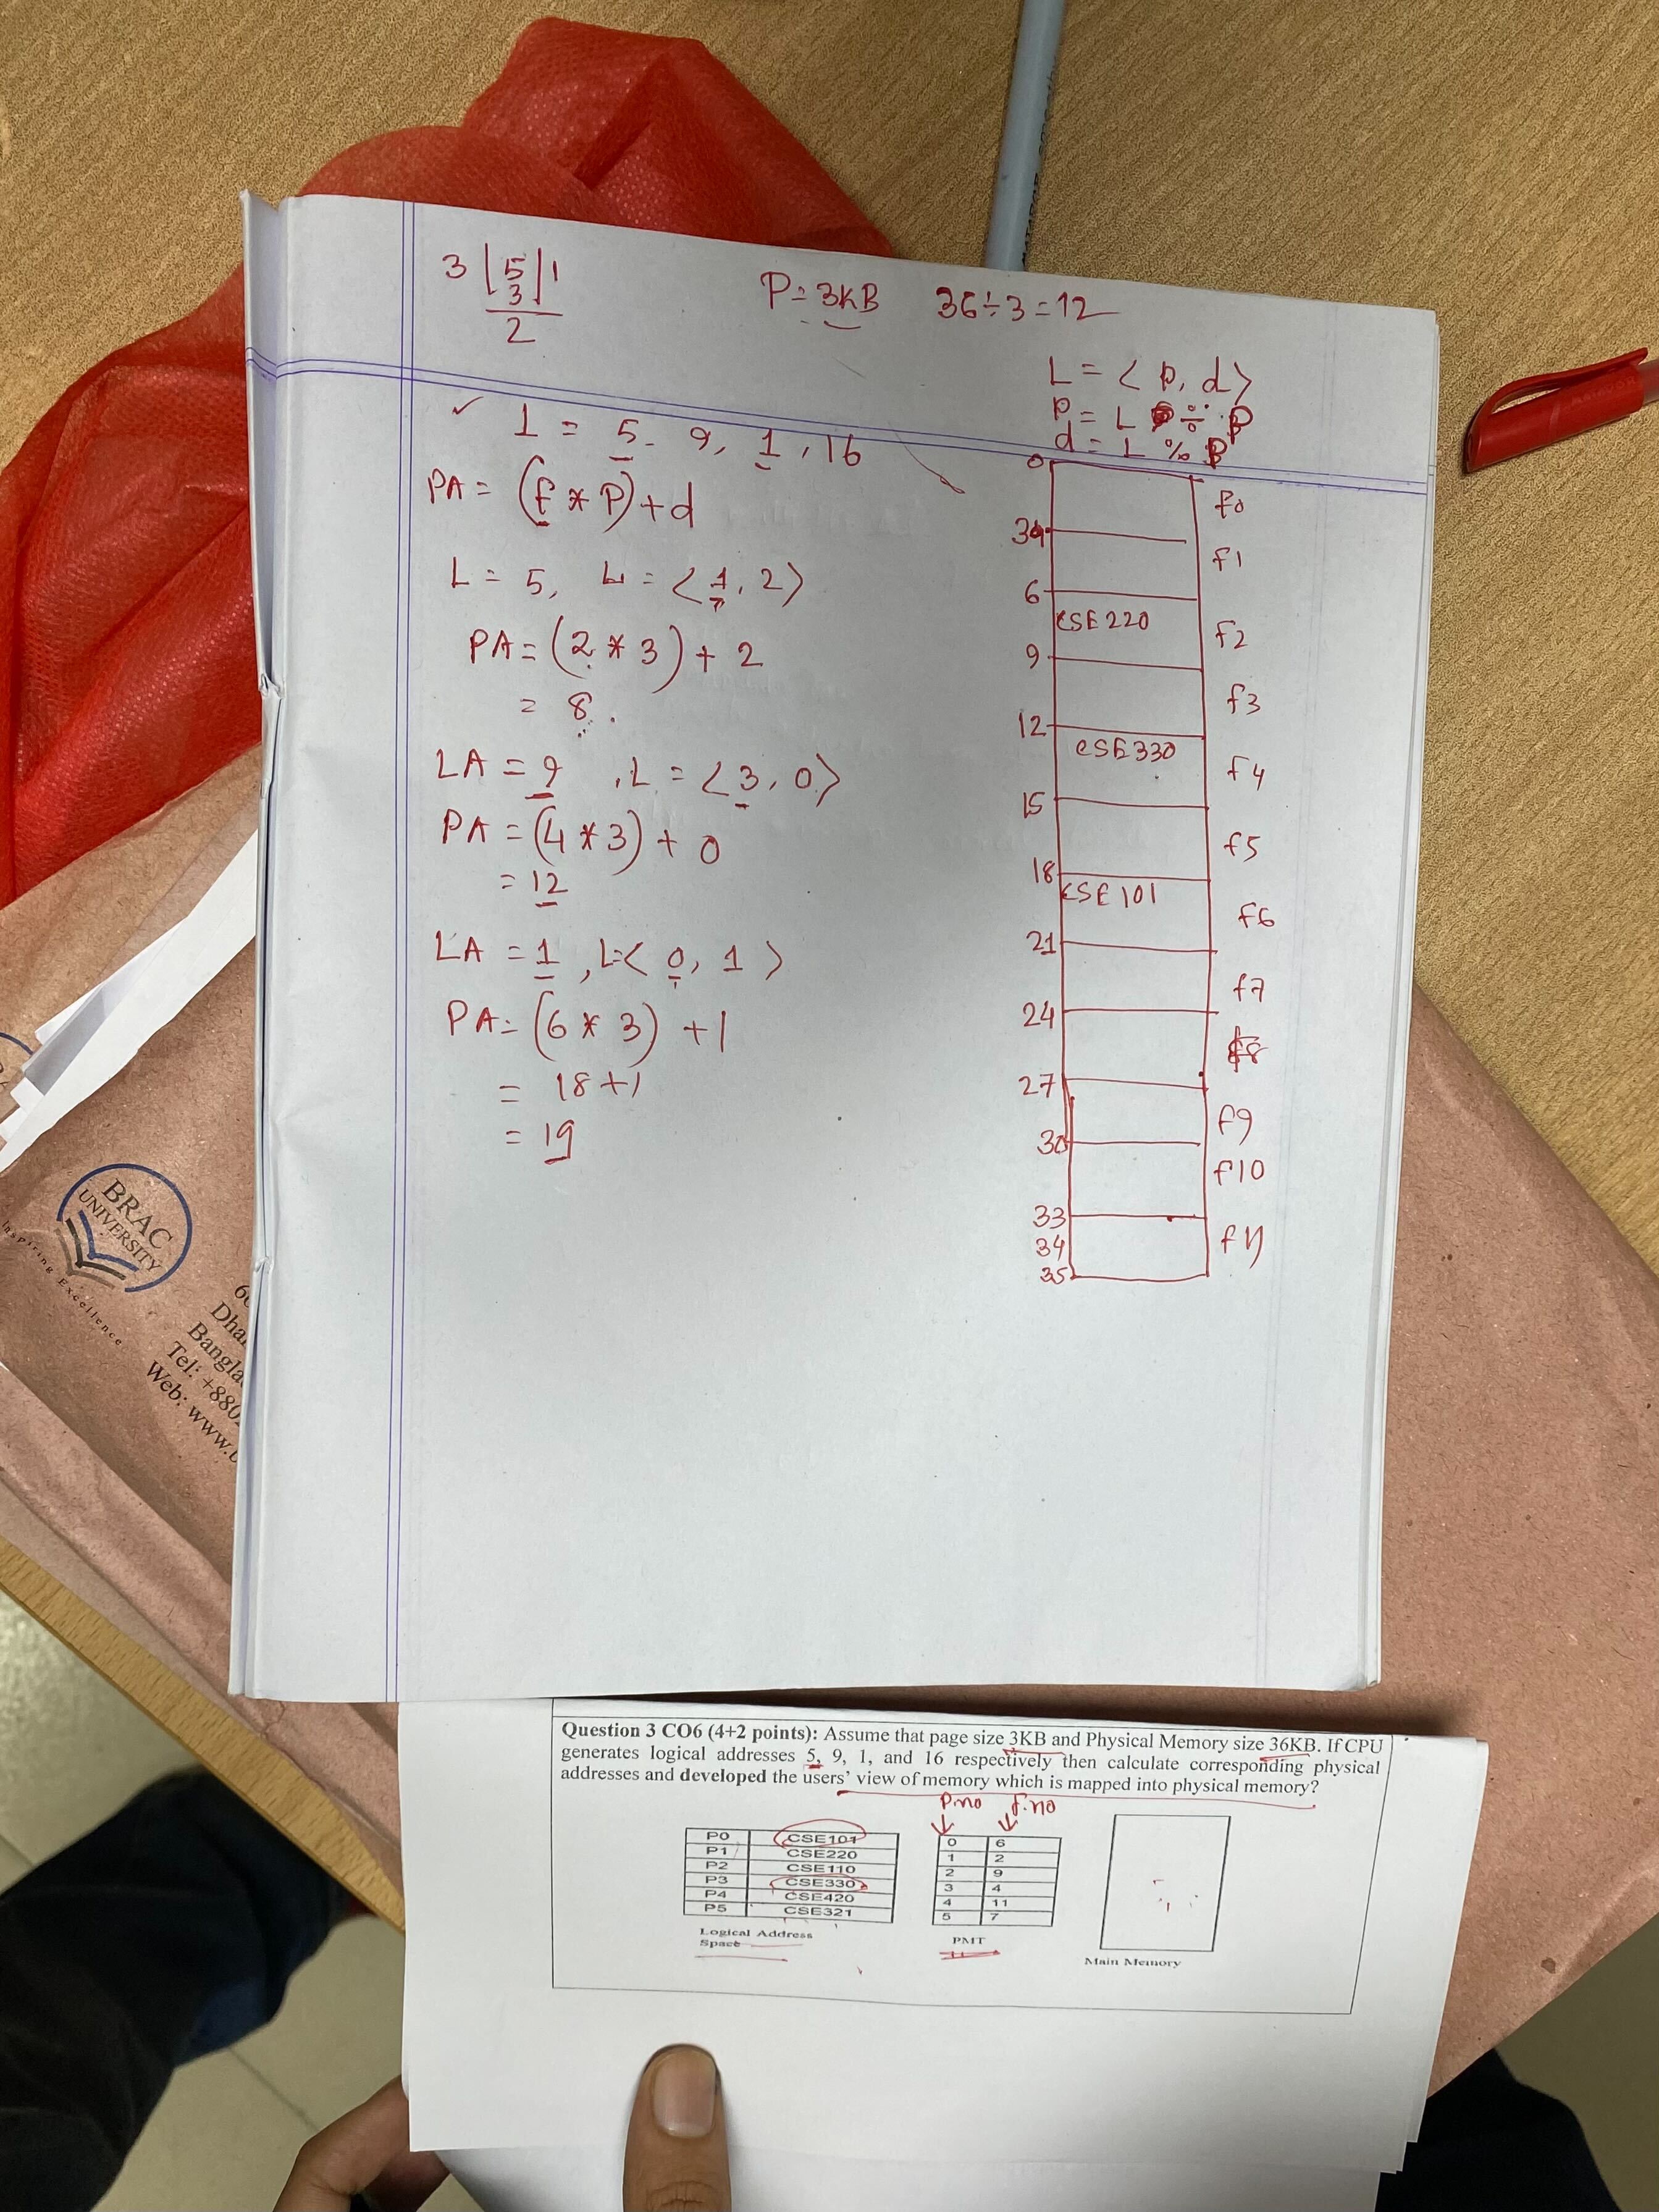 3 5 1
3
2
P = 3KB 36 ÷ 3 = 12
L = < P, d >
P = L ÷ P
d = L % P
L = 5, 9, 1, 16
PA = (f * P) + d
L = 5, L = < 1, 2 >
PA = (2 * 3) + 2
= 8.
LA = 9, L = < 3, 0 >
PA = (4 * 3) + 0
= 12
LA = 1, L = < 0, 1 >
PA = (6 * 3) + 1
= 18 + 1
= 19
0
f0
3
f1
6
CSE220 f2
9
f3
12
CSE330 f4
15
f5
18
CSE101 f6
21
f7
24
f8
27
f9
30
f10
33
34 f11
35
BRAC
UNIVERSITY
Inspiring Excellence
Tel: +880
Web: www.
Question 3 CO6 (4+2 points): Assume that page size 3KB and Physical Memory size 36KB. If CPU
generates logical addresses 5, 9, 1, and 16 respectively then calculate corresponding physical
addresses and developed the users' view of memory which is mapped into physical memory?
P.no f.no
P0 CSE101
P1 CSE220
P2 CSE110
P3 CSE330
P4 CSE420
P5 CSE321
Logical Address
Space
0 6
1 2
2 9
3 4
4 11
5 7
PMT
Main Memory